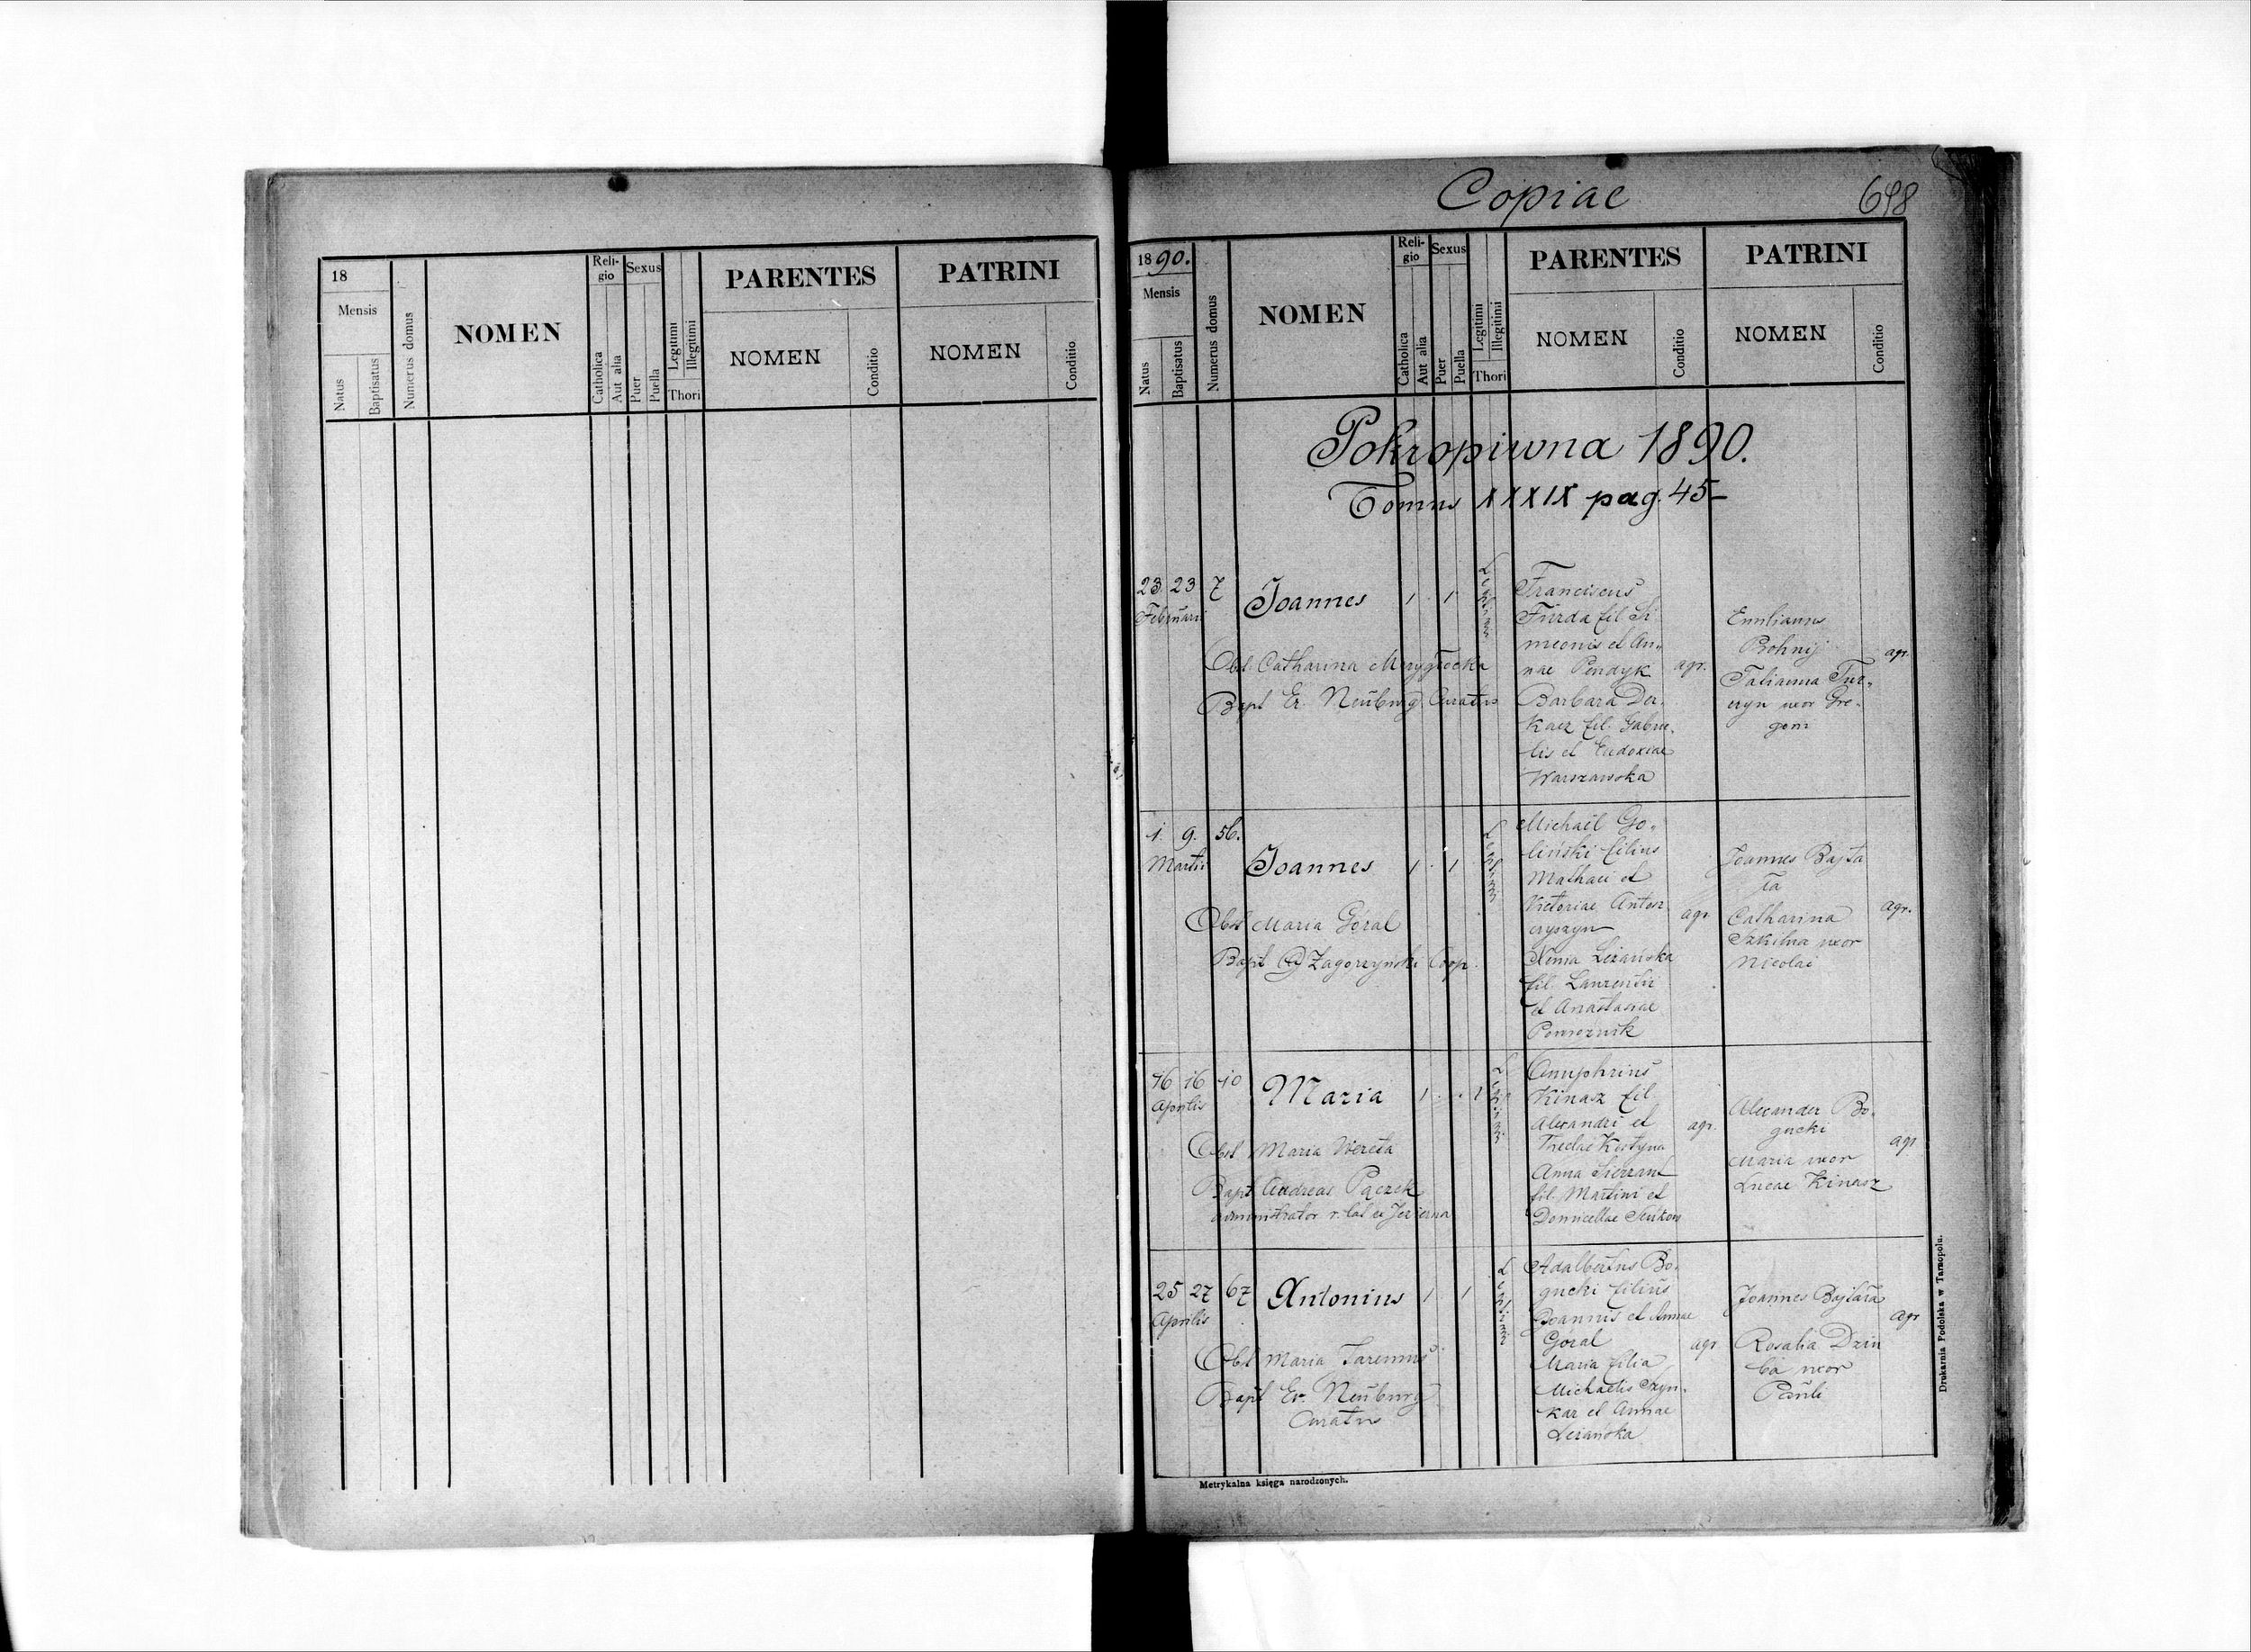 18
Mensis
Natus
Baptisatus
Numerus domus
NOMEN
Reli-
gio
Catholica
Aut alia
Sexus
Puer
Puella
Legitimi
Illegitimi
Thori
PARENTES
NOMEN
Conditio
PATRINI
NOMEN
Conditio
Copiae
698
1890.
Mensis
Natus
Baptisatus
Numerus domus
NOMEN
Reli-
gio
Catholica
Aut alia
Sexus
Puer
Puella
Legitimi
Illegitimi
Thori
PARENTES
NOMEN
Conditio
PATRINI
NOMEN
Conditio
Pokropiwna 1890.
Tomus XXXIX pag. 45
23 23 7 Joannes 1 1
Februarii
Obst. Catharina Mazygłocka
Bapt Er. Neuburg Curatus
Franciscus
Furda fil Si
meonis et An„
nae Pendyk
Barbara Du
kacz fil. Gabrie„
lis et Eudoxiae
Warszawska
agr.
Emilianus
Bohnij
Tatianna Tur„
czyn uxor Gre„
gorii
agr.
1. 9. 56.
Martii
Joannes 1 1
Obst Maria Goral
Bapt Zagorzynski Coop.
Michaël Go„
liński filius
Mathaei et
Victoriae Antosz
czyszyn
Xenia Leżańska
fil. Laurentii
et Anastasiae
Powroznik
agr
Joannes Bajta
ła
Catharina
Szkilna uxor
Nicolai
agr.
16 16 10 Maria 1 1
Aprilis
Obst Maria Wereta
Bapt Andreas Pączek
administrator r. lat ex Jezierna
Onuphrius
Kinasz fil
Alexandri et
Theclae Kostyna
Anna Sierant
fil. Martini et
Domicellae
agr.
Alexander Bo„
gucki
Maria uxor
Lucae Kinasz
agr
25 27 67 Antonius 1 1
Aprilis
Obst Maria
Bapt Er. Neuburg
Curatus
Adalbertus Bo„
gucki filius
Joannis et Annae
Goral
Maria filia
Michaelis Szyn„
kar et Annae
Leżańska
agr
Joannes Bajtała
Rosalia Dziu
ba uxor
Pauli
agr
Metrykalna księga narodzonych.
Drukarnia Podolska w Tarnopolu.